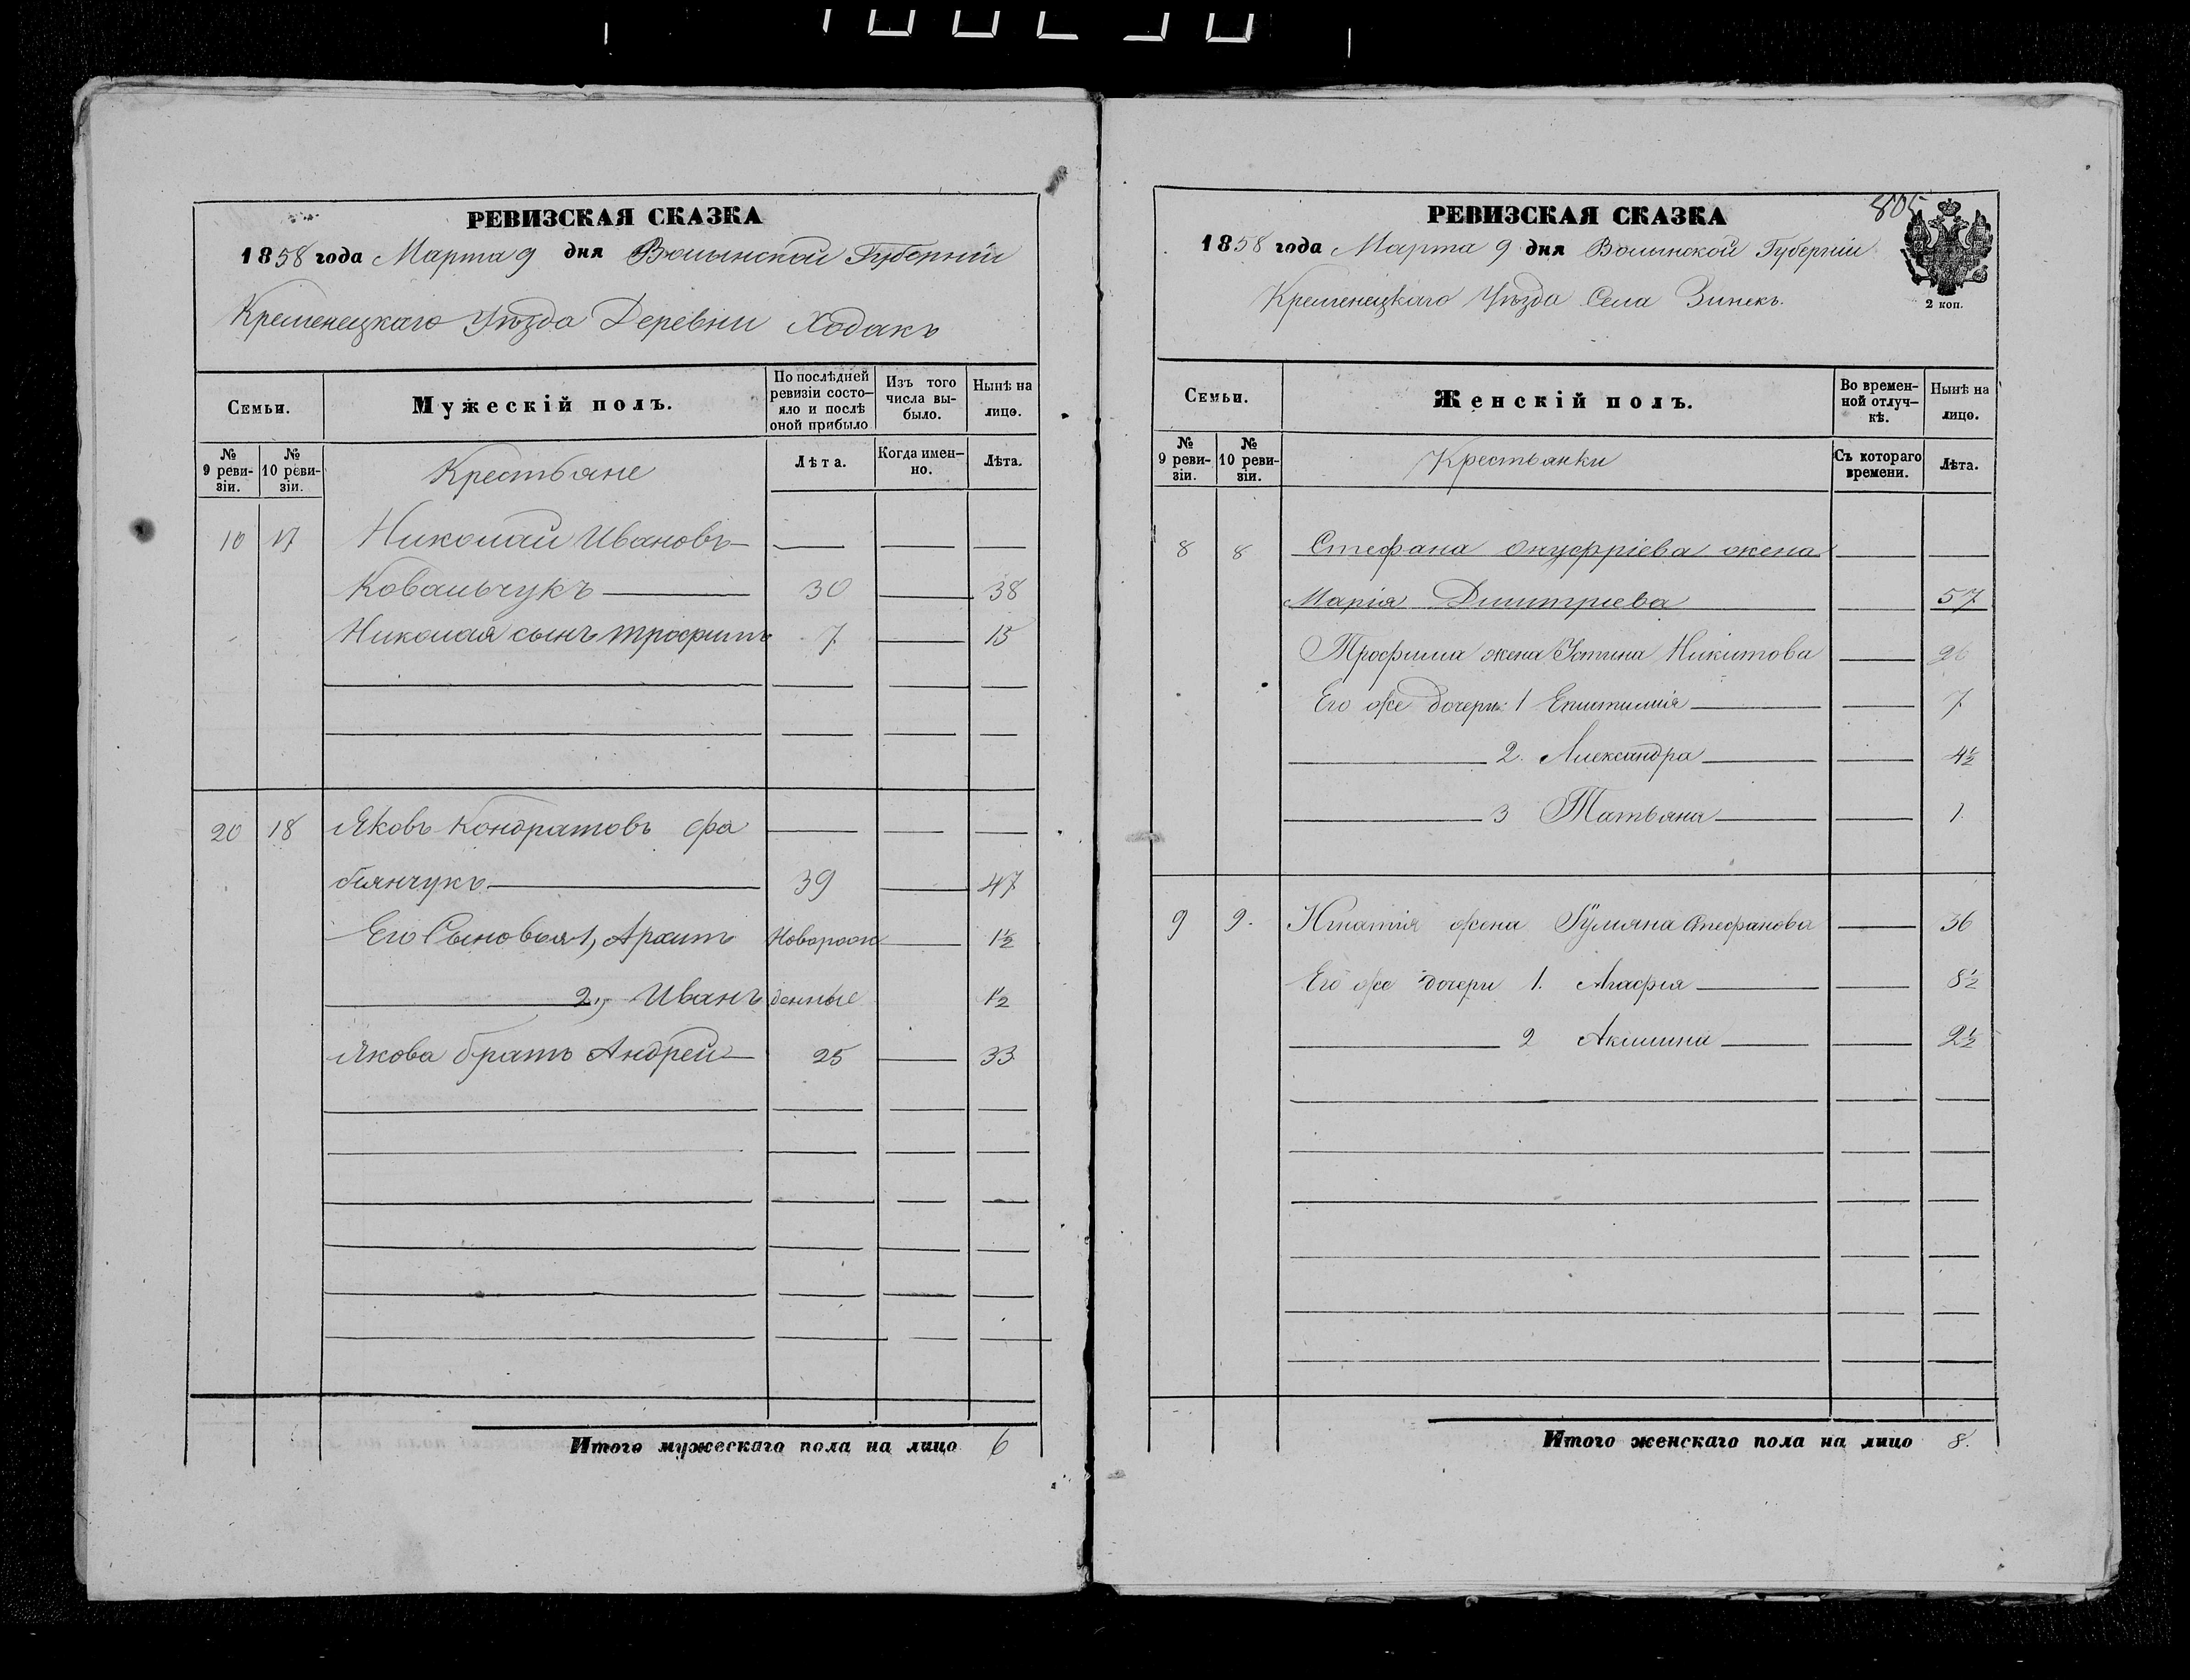 РЕВИЗСКАЯ СКАЗКА
1858 года Марта 9 дня Волынской Губерніи
Кременецкаго Уѣзда Деревни Ходакъ
Семьи.
Мужескій полъ.
По послѣдней ревизіи состояло и послѣ оной прибыло
Изъ того числа выбыло.
Нынѣ на лицо.
№ 9 ревизіи.
№ 10 ревизіи.
Крестьяне
Лѣта.
Когда именно.
Лѣта.
10 17 Николай Ивановъ
Ковальчукъ 30 38
Николая сынъ Трофимъ 7 15
20 18 Яковъ Кондратовъ Фа
біянчукъ 39 47
Его Сыновья 1, Архипъ Новорож 1½
2, Иванъ денные ½
Якова братъ Андрей 25 33
Итого мужескаго пола на лицо 6
805
РЕВИЗСКАЯ СКАЗКА
1858 года Марта 9 дня Волынской Губерніи
Кременецкаго Уѣзда Села Зинекъ.
2 коп.
Семьи.
Женскій полъ.
Во временной отлучкѣ.
Нынѣ на лицо.
№ 9 ревизіи.
№ 10 ревизіи.
Крестьянки
Съ котораго времени.
Лѣта.
8 8 Стефана Онуфріева жена
Марія Дмитріева 57
Трофима жена Устина Никитова 26
Его же дочери: 1 Епистимія 7
2. Александра 4½
3 Татьяна 1.
9 9. Игнатія жена Іуліяна Стефанова 36
Его же дочери 1. Агафія 8½
2 Акилина 2½
Итого женскаго пола на лицо 8.